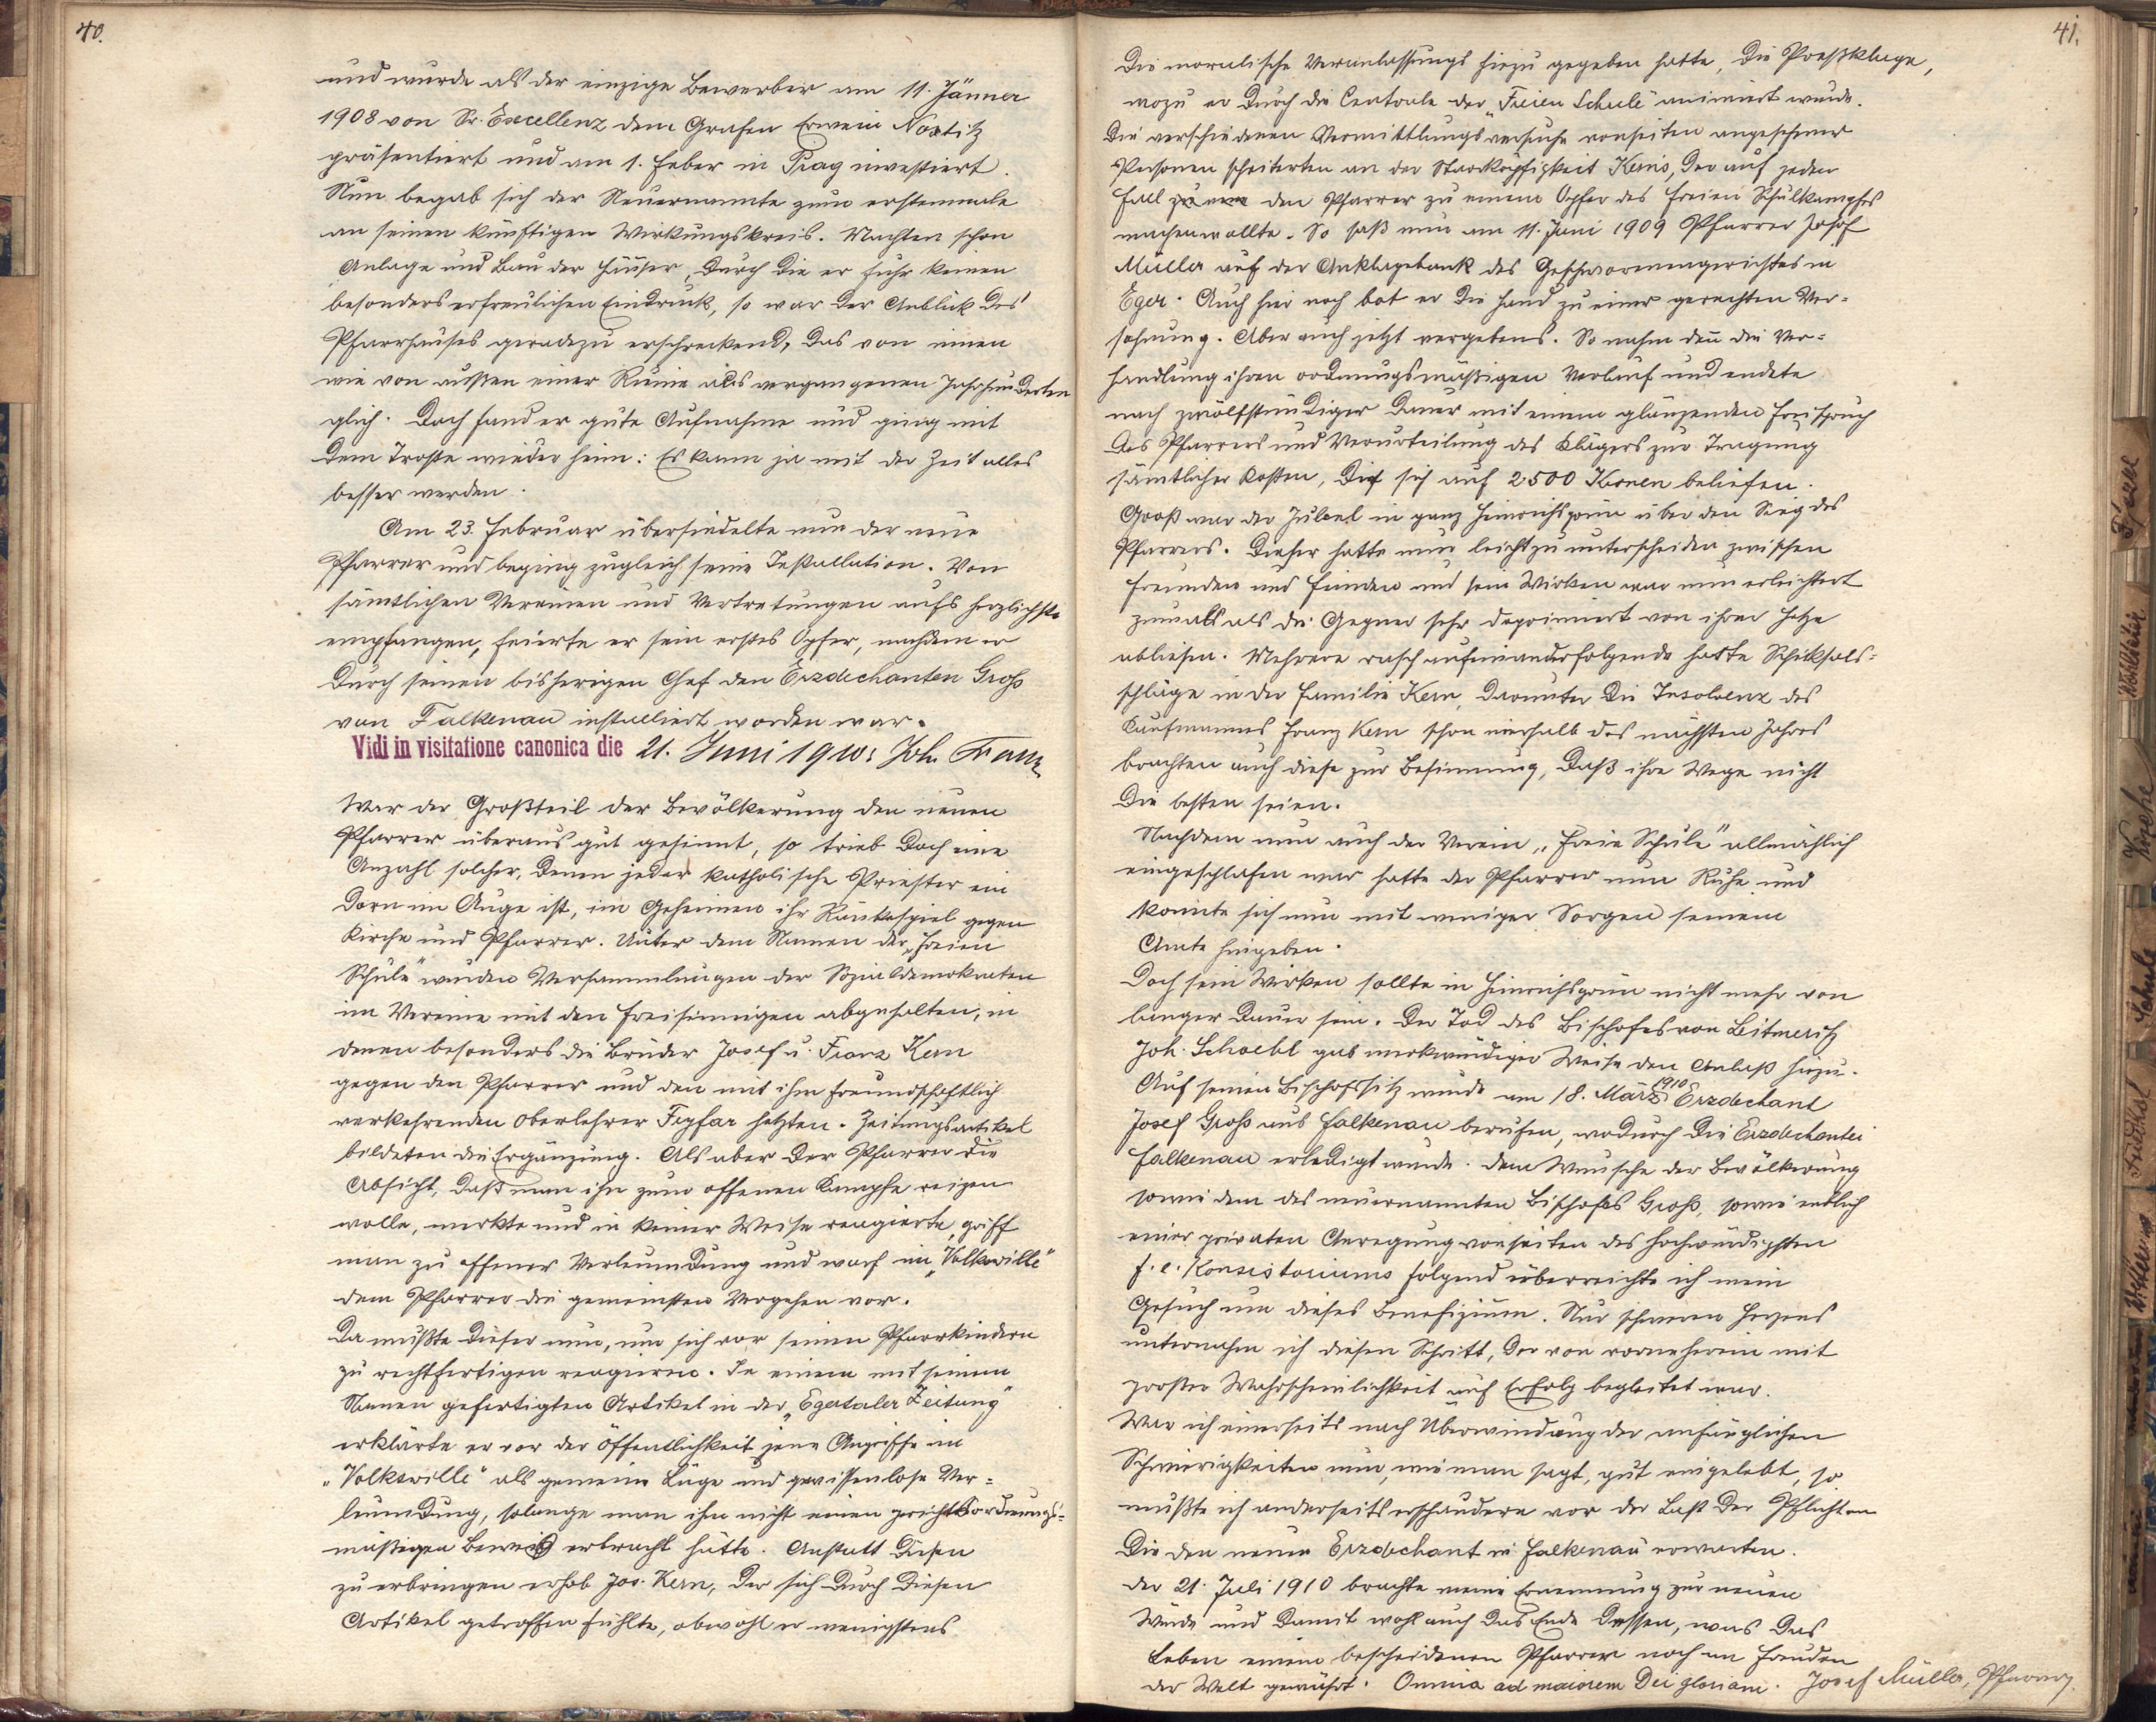 40.
und wurde als der einzige Bewerber am 11. Jänner
1908 von Sr. Excellenz dem Grafen Erwein Nostitz
präsentiert und am 1. Feber in Prag investiert.
Nun begab sich der Neuernannte zum erstenmale
an seinen künftigen Wirkungskreis. Machten schon
Anlage und Bau der Häuser, durch die er fuhr keinen
besonders erfreulichen Eindruck, so war der Anblick des
Pfarrhauses geradezu erschreckend, das von innen
wie von außen einer Ruine aus vergangenen Jahrhunderten
glich. Doch fand er gute Aufnahme und ging mit
dem Troste wieder heim: Es kann ja mit der Zeit alles
besser werden.
Am 23. Februar übersiedelte nun der neue
Pfarrer und beging zugleich seine Installation. Von
sämtlichen Vereinen und Vertretungen aufs herzlichste
empfangen, feierte er sein erstes Opfer, nachdem er
durch seinen bisherigen Chef den Erzdechanten Groß
von Falkenau installiert worden war.
Vidi in visitatione canonica die 21. Juni 1910: Joh.
War der Großteil der Bevölkerung den neuen
Pfarrer überaus gut gesinnt, so trieb doch eine
Anzahl solcher, denen jeder katholische Priester ein
Dorn im Auge ist, im Geheimen ihr Ränkespiel gegen
Kirche und Pfarrer. Unter dem Namen der „Freien
Schule" wurden Versammlungen der Sozialdemokraten
im Vereine mit den Freisinnigen abgehalten, in
denen besonders die Brüder Josef u. Franz Kern
gegen den Pfarrer und den mit ihm freundschaftlich
verkehrenden Oberlehrer hetzten. Zeitungsartikel
bildeten die Ergänzung. Als aber der Pfarrer die
Absicht, daß man ihn zum offenen Kampfe reizen
wolle, merkte und in keiner Weise reagierte, griff
man zu offener Verleumdung und warf im „Volkswille"
dem Pfarrer die gemeinsten Vergehen vor.
Da mußte dieser nun, um sich vor seinen Pfarrkindern
zu rechtfertigen reagieren. In einem mit seinem
Namen gefertigten Artikel in der „Egertaler Zeitung"
erklärte er vor der Öffentlichkeit jene Angriffe im
„Volkswille" als gemeine Lüge und gewissenlose Ver=
leumdung, solange man ihm nicht einen gerichtsordnungs=
mäßigen Beweis erbracht hätte. Anstatt diesen
zu erbringen erhob Jos. Kern, der sich durch diesen
Artikel getroffen fühlte, obwohl er wenigstens
41.
die moralische Veranlassung hiezu gegeben hatte, die Preßklage,
wozu er durch die Centrale der „Freien Schule" animiert wurde.
Die verschiedenen Vermittlungsversuche vonseiten angesehener
Personen scheiterten an der Starrköpfigkeit Kerns, der auf jeden
Fall den Pfarrer zu einem Opfer des freien Schulkampfes
machen wollte. So saß nun am 11. Juni 1909 Pfarrer Josef
Müller auf der Anklagebank des Geschworenengerichtes in
Eger. Auch hier noch bot er die Hand zu einer gerechten Ver=
söhnung. Aber auch jetzt vergebens. So nahm denn die Ver=
handlung ihren ordnungsmäßigen Verlauf und endete
nach zwölfstündiger Dauer mit einem glänzenden Freispruch
des Pfarrers und Verurteilung des Klägers zur Tragung
sämtlicher Kosten, die sich auf 2500 Kronen beliefen.
Groß war der Jubel in ganz Heinrichsgrün über den Sieg des
Pfarrers. Dieser hatte nun leicht zu unterscheiden zwischen
Freunden und Feinden und sein Wirken war nun erleichtert
zumal als die Gegner sehr deprimiert von ihrer Hetze
abließen. Mehrere rasch aufeinanderfolgende harte Schicksals=
schläge in der Familie Kern, darunter die Insolvenz des
Kaufmannes Franz Kern schon innerhalb des nächsten Jahres
brachten auch diese zur Besinnung, daß ihre Wege nicht
die besten seien.
Nachdem nun auch der Verein „Freie Schule" allmählich
eingeschlafen war hatte der Pfarrer nun Ruhe und
konnte sich nun mit weniger Sorgen seinem
Amte hingeben.
Doch sein Wirken sollte in Heinrichsgrün nicht mehr von
langer Dauer sein. Der Tod des Bischofes von Leitmeritz
Joh. Schoebl gab merkwürdiger Weise den Anlaß hiezu.
Auf seinen Bischofssitz wurde am 18. März 1910 Erzdechant
Josef Groß aus Falkenau berufen, wodurch die Erzdechantei
Falkenau erledigt wurde. Dem Wunsche der Bevölkerung
sowie dem des neuernannten Bischofes Groß, sowie endlich
einer privaten Anregung vonseiten des hochwürdigsten
f. e. Konsistoriums folgend überreichte ich mein
Gesuch um dieses Benefizium. Nur schweren Herzens
unternahm ich diesen Schritt, der von vorneherein mit
großer Wahrscheinlichkeit auf Erfolg begleitet war.
War ich einerseits nach Überwindung der anfänglichen
Schwierigkeiten nun, wie man sagt, gut eingelebt, so
mußte ich anderseits erschaudern vor der Last der Pflichten
die den neuen Erzdechant in Falkenau erwarten.
Der 21. Juli 1910 brachte meine Ernennung zur neuen
Würde und damit wohl auch das Ende dessen, was das
Leben einem bescheidenen Pfarrer noch an Freuden
der Welt gewährt. Omnia ad maiorem Dei gloriam. Josef Müller, Pfarrer.
Kirche
Schule
Friedhof